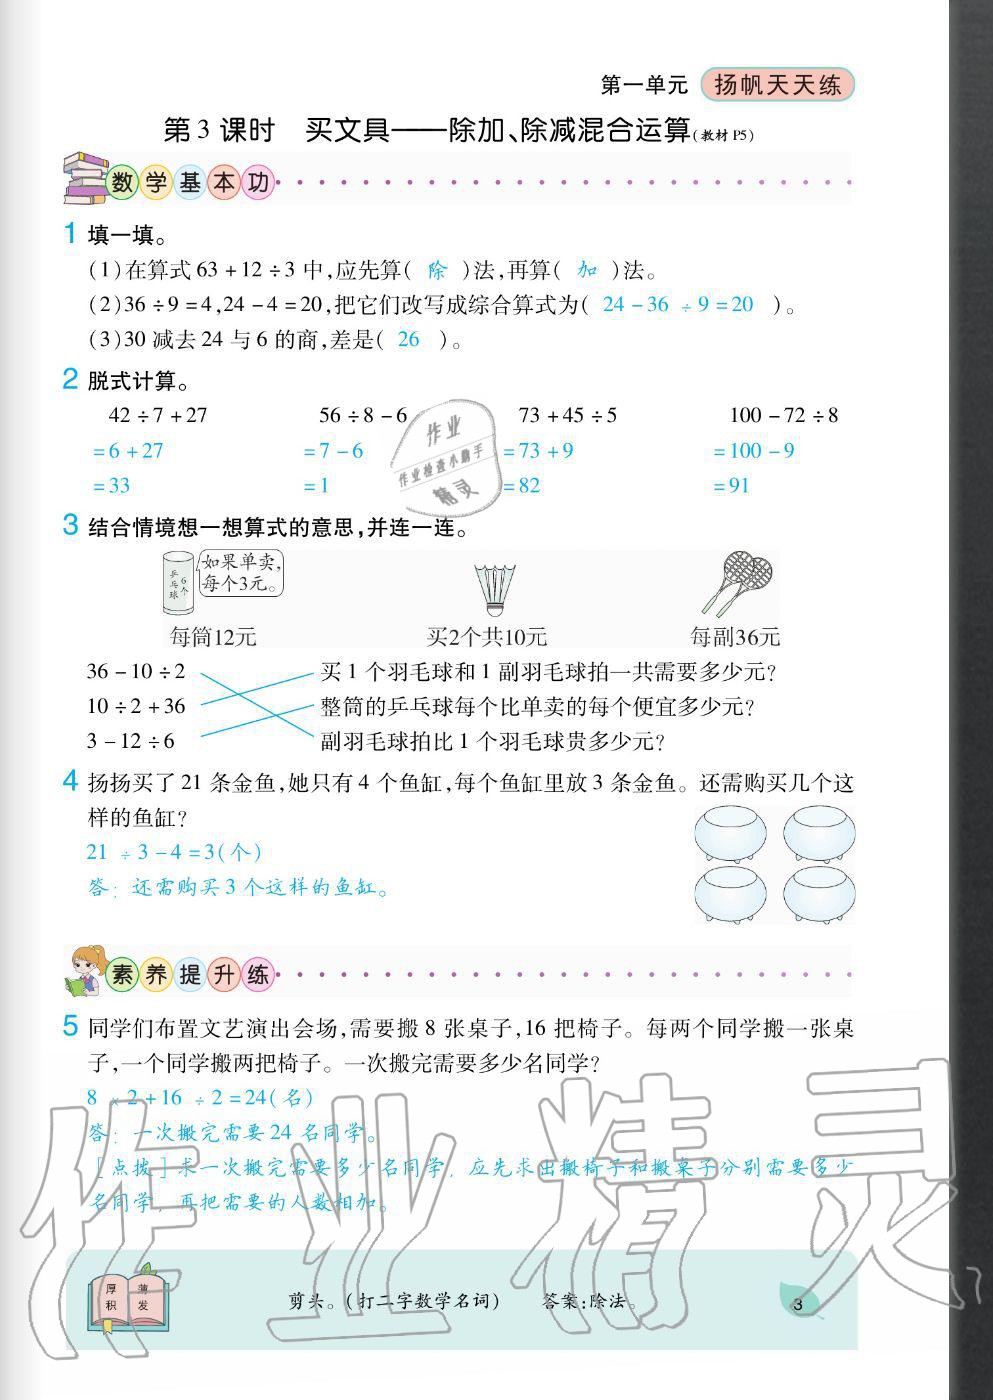 第一单元 扬帆天天练
第 3 课时 买文具——除加、除减混合运算(教材 P5)
数学基本功
1 填一填。
(1)在算式 63 + 12 ÷ 3 中,应先算( 除 )法,再算( 加 )法。
(2)36 ÷ 9 = 4,24 - 4 = 20,把它们改写成综合算式为( 24 - 36 ÷ 9 = 20 )。
(3)30 减去 24 与 6 的商,差是( 26 )。
2 脱式计算。
42 ÷ 7 + 27 56 ÷ 8 - 6 73 + 45 ÷ 5 100 - 72 ÷ 8
= 6 + 27 = 7 - 6 = 73 + 9 = 100 - 9
= 33 = 1 = 82 = 91
作业
作业检查小助手
精灵
3 结合情境想一想算式的意思,并连一连。
乒乓球 6个
如果单卖,
每个3元。
每筒12元 买2个共10元 每副36元
36 - 10 ÷ 2 买 1 个羽毛球和 1 副羽毛球拍一共需要多少元?
10 ÷ 2 + 36 整筒的乒乓球每个比单卖的每个便宜多少元?
3 - 12 ÷ 6 副羽毛球拍比 1 个羽毛球贵多少元?
4 扬扬买了 21 条金鱼,她只有 4 个鱼缸,每个鱼缸里放 3 条金鱼。还需购买几个这
样的鱼缸?
21 ÷ 3 - 4 = 3(个)
答:还需购买 3 个这样的鱼缸。
素养提升练
5 同学们布置文艺演出会场,需要搬 8 张桌子,16 把椅子。每两个同学搬一张桌
子,一个同学搬两把椅子。一次搬完需要多少名同学?
8 × 2 + 16 ÷ 2 = 24(名)
答:一次搬完需要 24 名同学。
[点拨]求一次搬完需要多少名同学,应先求出搬椅子和搬桌子分别需要多少
名同学,再把需要的人数相加。
作业精灵
厚积 薄发
剪头。(打二字数学名词) 答案:除法。
3